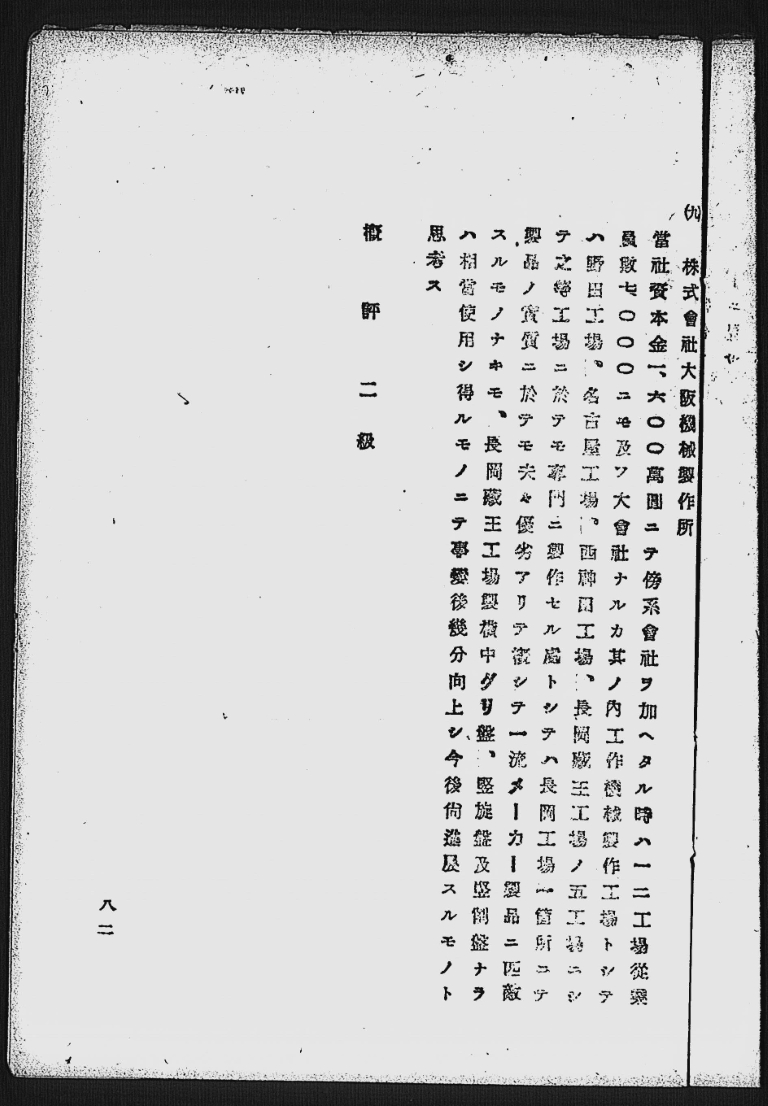 (九)　株式會社大阪機械製作所
當社資本金一、六〇〇萬圓ニテ傍系會社ヲ加ヘタル時ハ一二工場從業
員數七〇〇〇ニモ及フ大會社ナルカ其ノ内工作機械製作工場トシテ
ハ野田工場、名古屋工場、西神田工場、長岡藏王工場ノ五工場ニシ
テ之等工場ニ於テモ專門ニ製作セル處トシテハ長岡工場一箇所ニテ
製品ノ實質ニ於テモ夫々優劣アリテ概シテ一流メーカー製品ニ匹敵
スルモノナキモ、長岡藏王工場製横中グリ盤、竪旋盤及竪削盤ナラ
ハ相當使用シ得ルモノニテ事變後幾分向上シ、今後尚進展スルモノト
思考ス
概評二級
八二